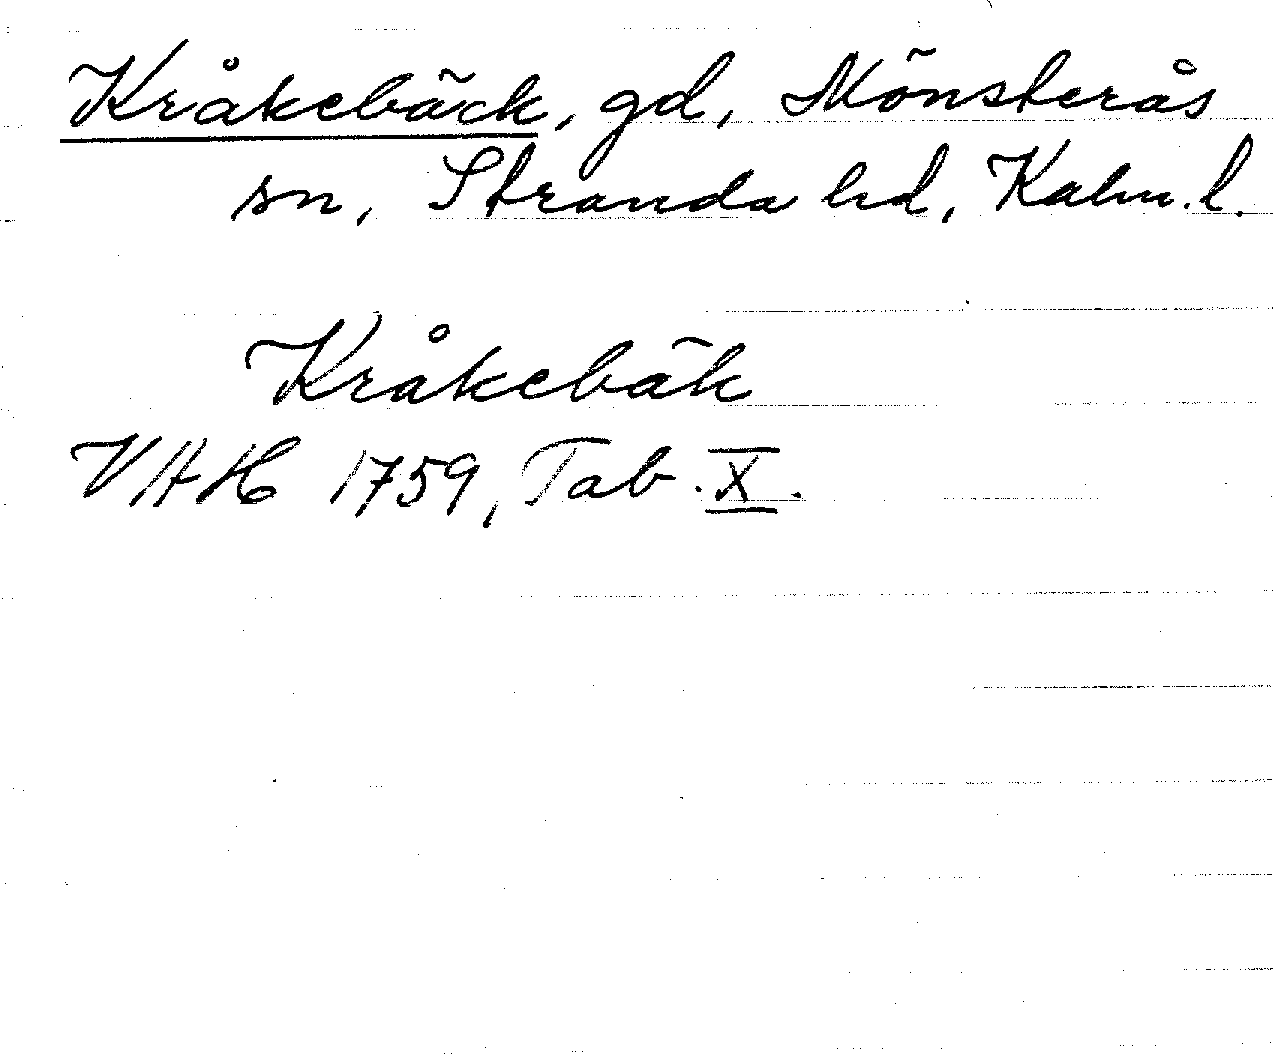 Kråkebäck, gd, Mönsterås
sn, Stranda hd, Kalm. l.
Kråkebäk
VAH 1759, Tab. X.